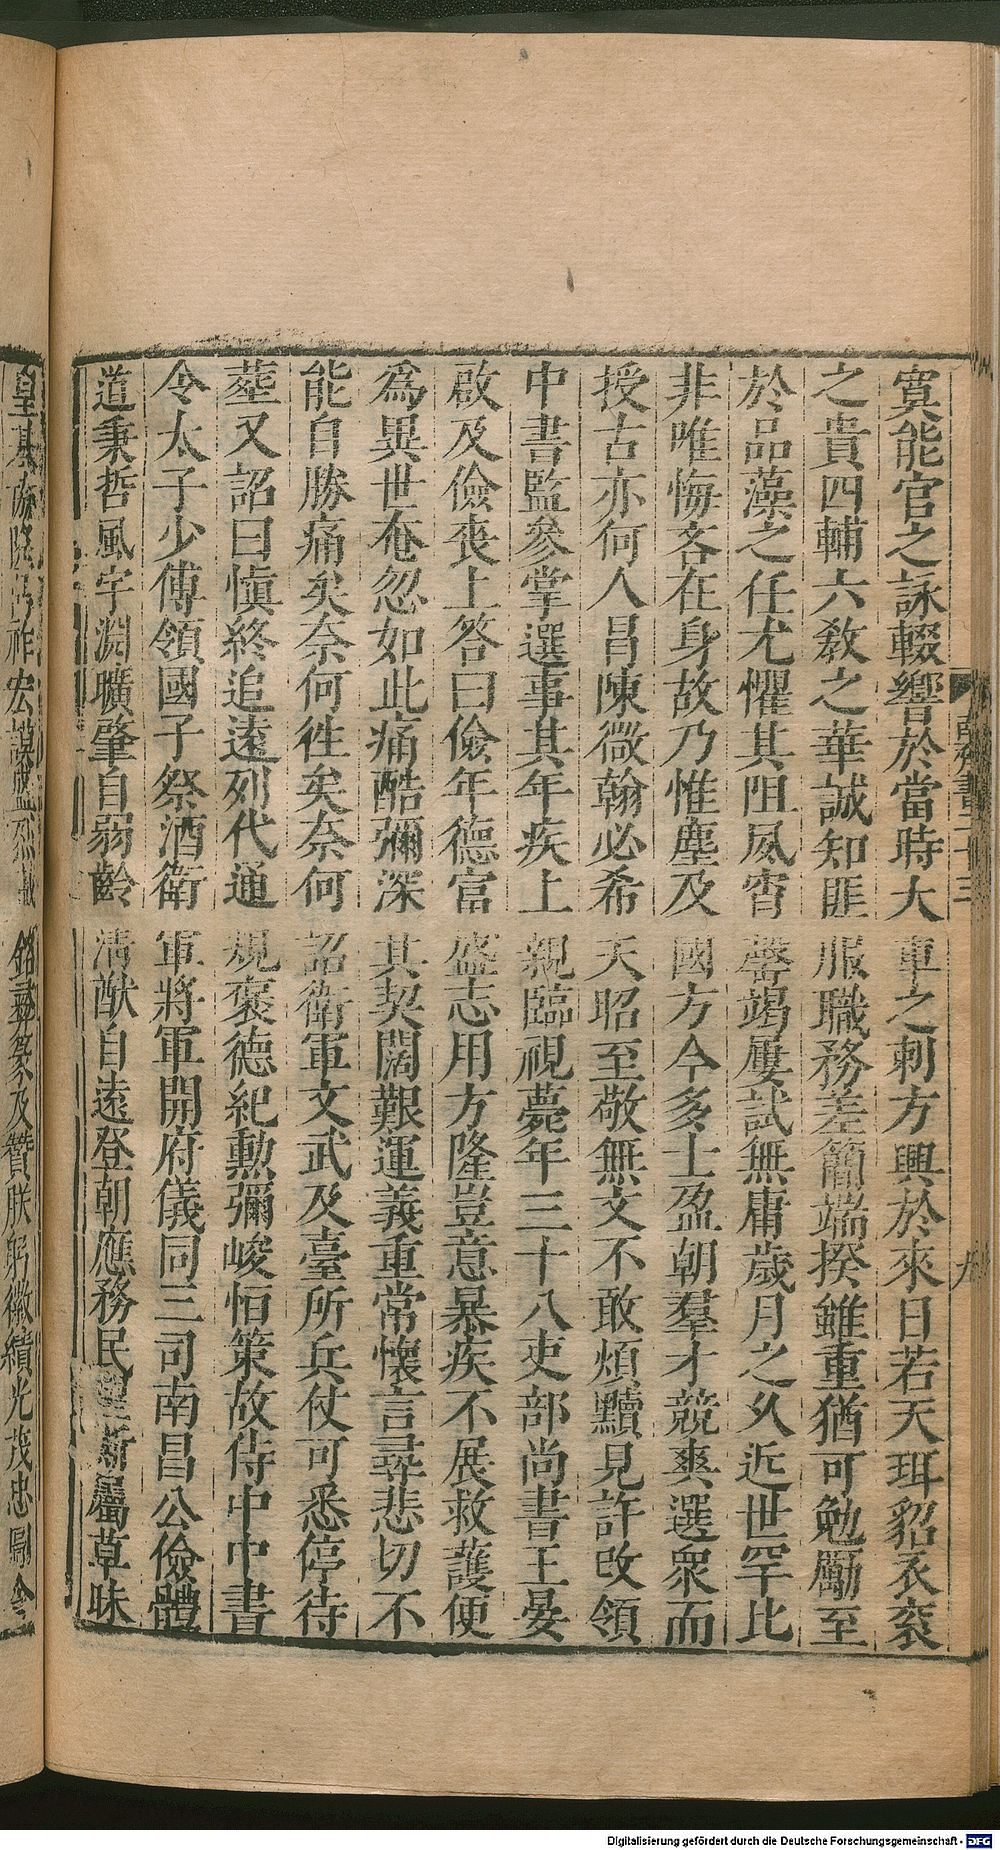 寘能官之詠輟響於當時大車之刺方興於來日若天珥貂衣衮
之貴四輔六教之華誠知匪服職務差簡端揆雖重猶可勉勵至
於品藻之任尤懼其阻夙宵罄竭屢試無庸歲月之久近世罕比
非唯悔吝在身故乃惟塵及國方今多士盈朝羣才競爽選衆而
授古亦何人冒陳微翰必希天昭至敬無文不敢煩黷見許改領
中書監參掌選事其年疾上親臨視薨年三十八吏部尚書王晏
啟及儉喪上答曰儉年德富盛志用方隆豈意暴疾不展救護便
爲異世奄忽如此痛酷彌深其契闊艱運義重常懷言尋悲切不
能自勝痛矣奈何徃矣奈何詔衛軍文武及臺所兵仗可悉停待
葬又詔曰愼終追遠列代通規褒德紀勳彌峻恒策故侍中中書
令太子少傅領國子祭酒衛軍將軍開府儀同三司南昌公儉體
道秉哲風宇淵曠肇自弱齡清猷自遠登朝應務民望斯屬草昧
南齊書二十三
九
皇基 宏謨盛烈 銘彝篆及贊朕躬徽績光茂忠 令
Digitalisierung gefördert durch die Deutsche Forschungsgemeinschaft - DFG